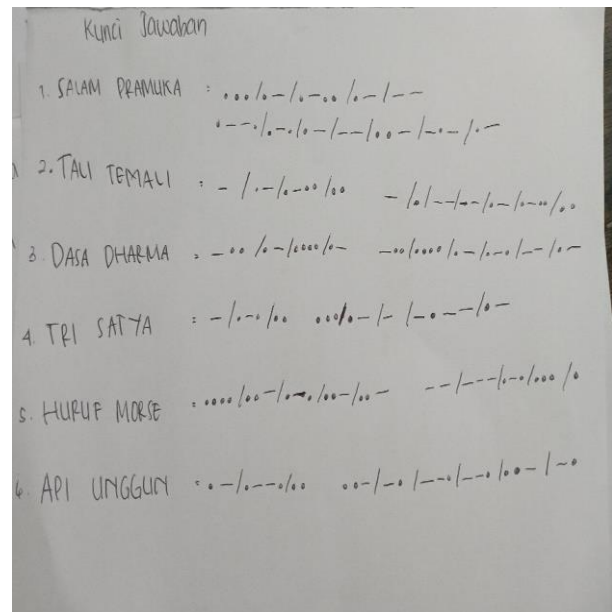 Kunci Jawaban
1. SALAM PRAMUKA : ... / .- / .-.. / .- / --
.--. / .-. / .- / -- / ..- / -.- / .-
2. TALI TEMALI : - / .- / .-.. / .. - / . / -- / .- / .- / .-.. / ..
3. DASA DHARMA : -.. / .- / .... / .- -.. / .... / .- / .-. / -- / .-
4. TRI SATYA : - / .-. / .. ... / .- / - / -.-- / .-
5. HURUF MORSE : .... / ..- / .-. / ..- / ..- -- / --- / .-. / ... / .
6. API UNGGUN : .- / .--. / .. ..- / -. / --. / --. / ..- / -.